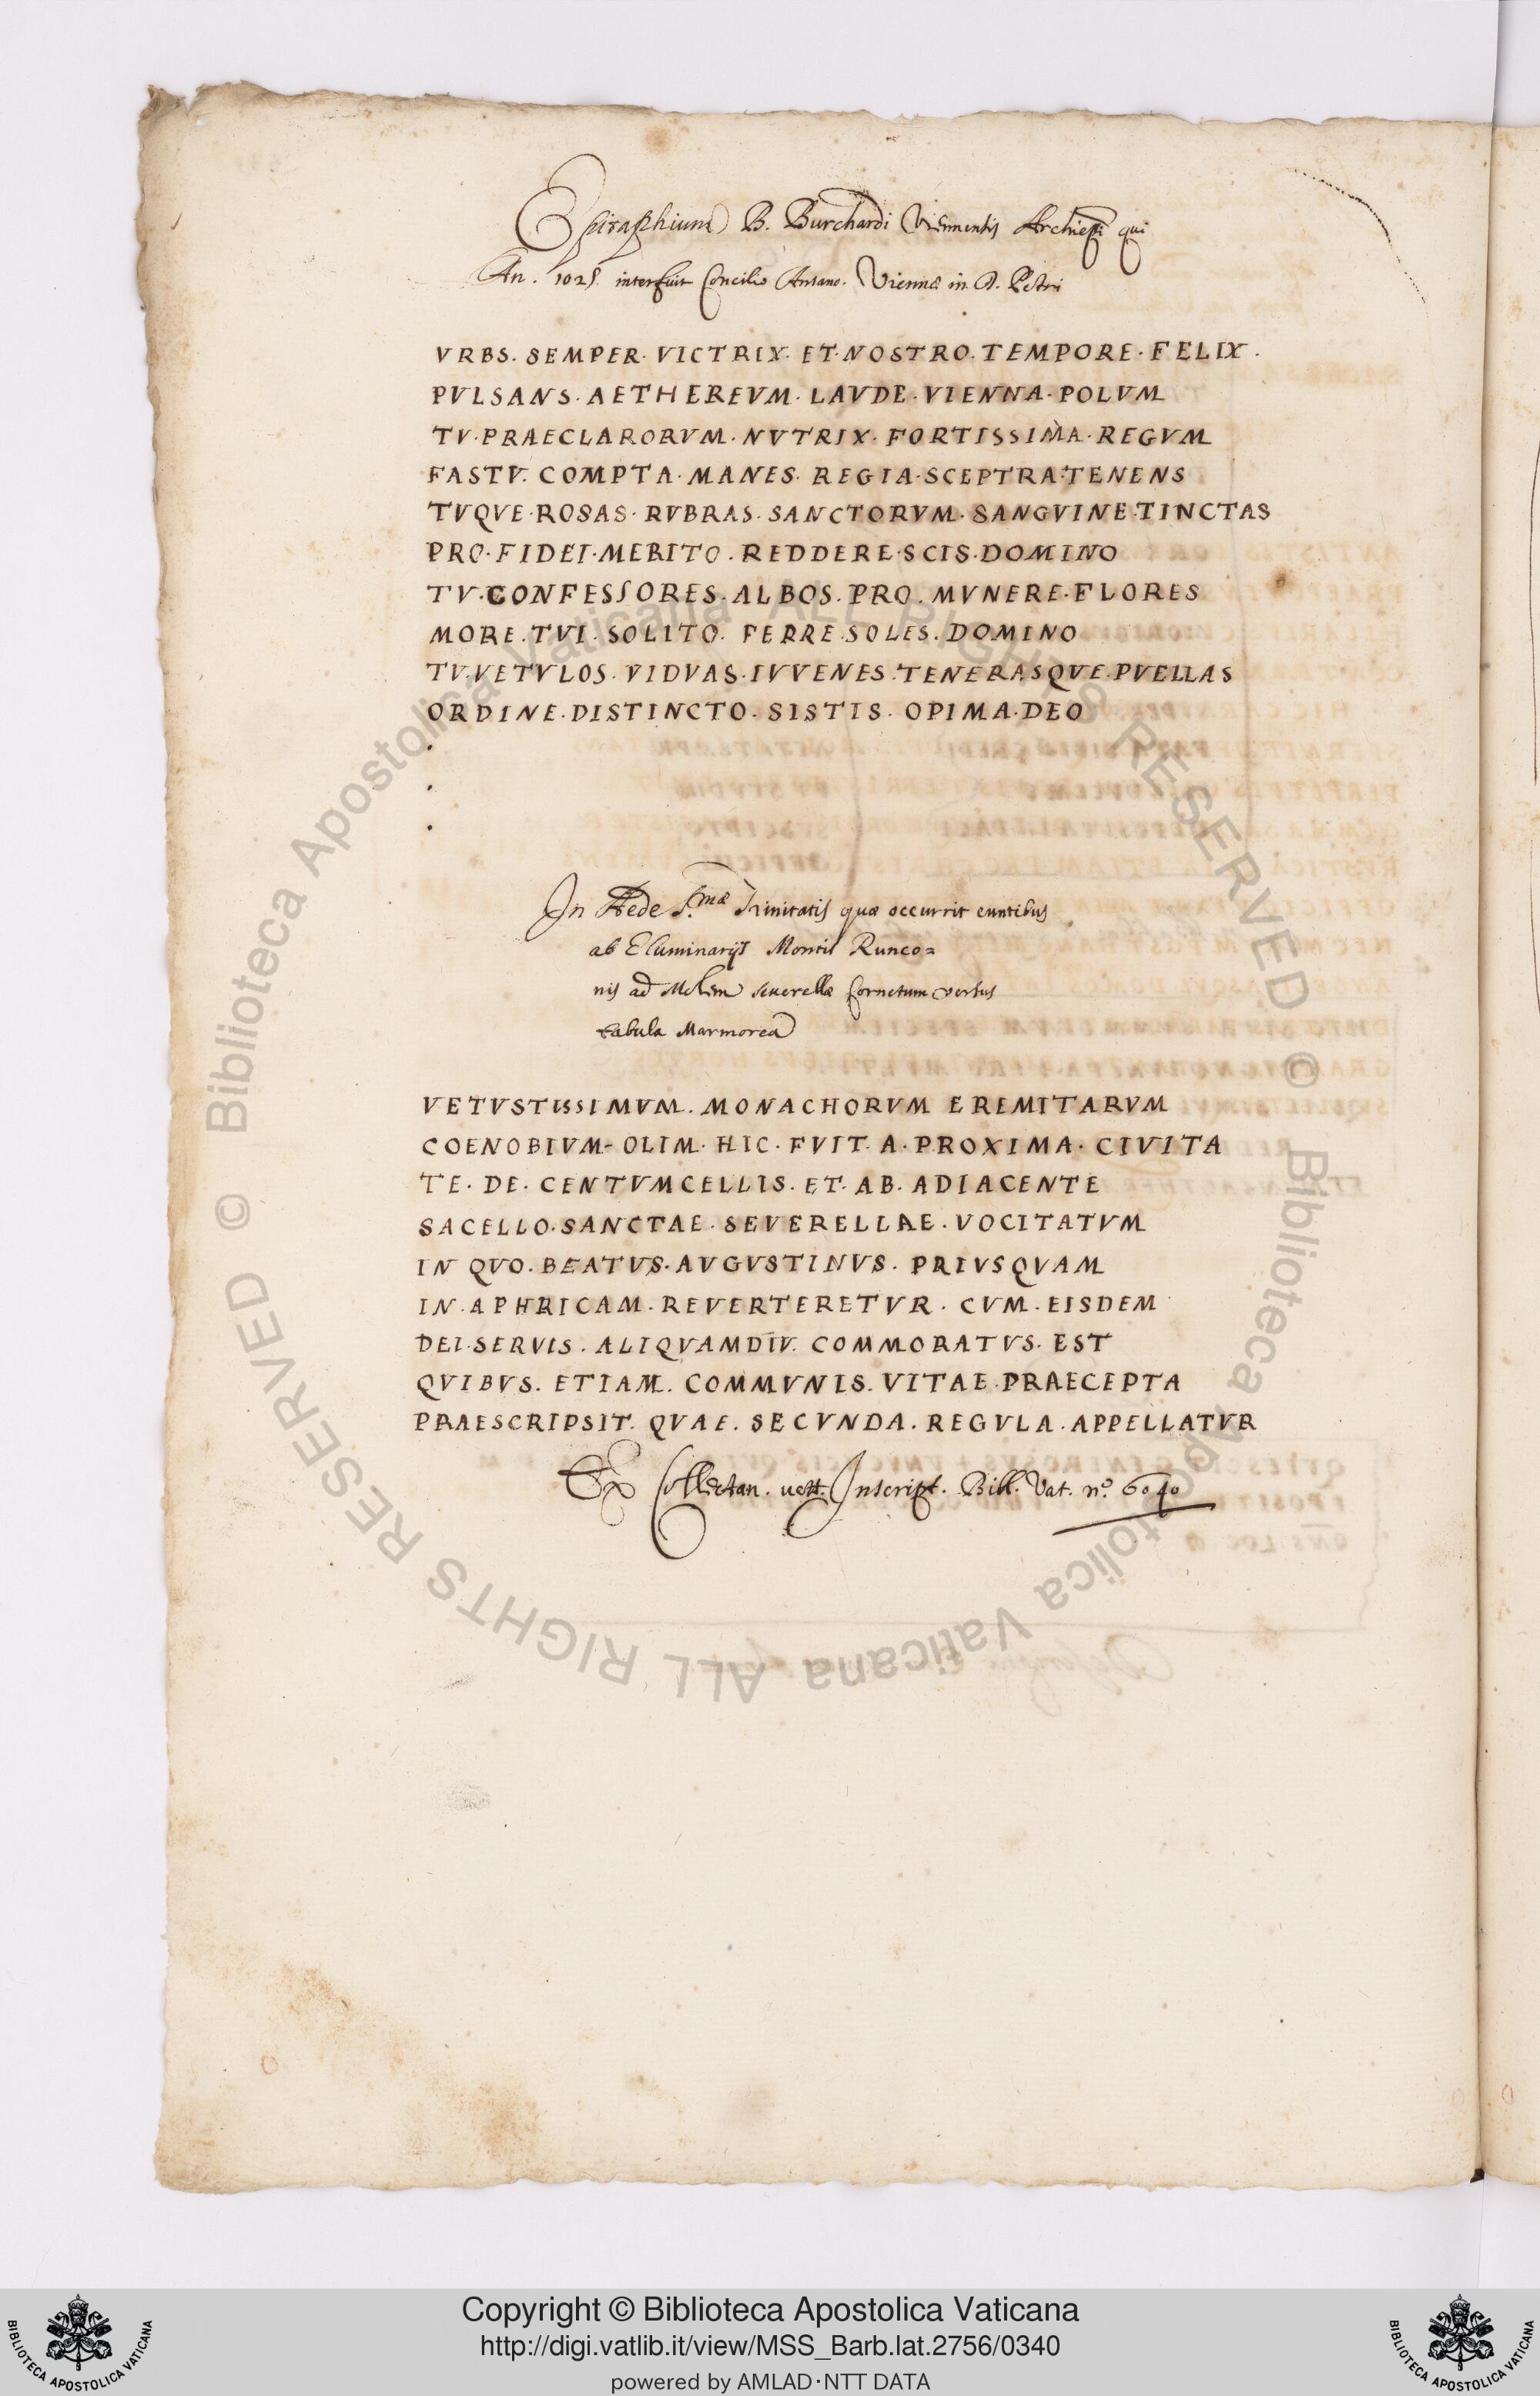 Epitaphium B. Burchardi Viennensis Archiepi qui
An. 1025. interfuit Concilio Ansano. Viennæ in D. Petri
VRBS. SEMPER. VICTRIX. ET. NOSTRO. TEMPORE. FELIX.
PVLSANS. AETHEREVM. LAVDE. VIENNA. POLVM
TV. PRAECLARORVM. NVTRIX. FORTISSIMA. REGVM
FASTV. COMPTA. MANES. REGIA. SCEPTRA. TENENS
TVQVE. ROSAS. RVBRAS. SANCTORVM. SANGVINE. TINCTAS
PRO. FIDEI. MERITO. REDDERE. SCIS. DOMINO
TV. CONFESSORES. ALBOS. PRO. MVNERE. FLORES
MORE. TVI. SOLITO. FERRE. SOLES. DOMINO
TV. VETVLOS. VIDVAS. IVVENES. TENERASQVE. PVELLAS
ORDINE. DISTINCTO. SISTIS. OPIMA. DEO
.
.
.
In Aede S.mæ Trinitatis quæ occurrit euntibus
ab Eluminarijs Montis Runco=
nis ad Severellæ Cornetum versus
tabula Marmorea
VETVSTISSIMVM. MONACHORVM EREMITARVM
COENOBIVM- OLIM. HIC. FVIT. A. PROXIMA. CIVITA
TE. DE. CENTVMCELLIS. ET. AB. ADIACENTE
SACELLO. SANCTAE. SEVERELLAE. VOCITATVM
IN QVO. BEATVS. AVGVSTINVS. PRIVSQVAM
IN. APHRICAM. REVERTERETVR. CVM. EISDEM
DEI. SERVIS. ALIQVAMDIV. COMMORATVS. EST
QVIBVS. ETIAM. COMMVNIS. VITAE. PRAECEPTA
PRAESCRIPSIT. QVAE. SECVNDA. REGVLA. APPELLATVR
Ex Collectan. vett. Inscript. Bibl. Vat. nº. 6040
© Biblioteca Apostolica Vaticana ALL RIGHTS RESERVED © Biblioteca Apostolica Vaticana ALL RIGHTS RESERVED
Copyright © Biblioteca Apostolica Vaticana
http://digi.vatlib.it/view/MSS_Barb.lat.2756/0340
powered by AMLAD·NTT DATA
BIBLIOTECA APOSTOLICA VATICANA
BIBLIOTECA APOSTOLICA VATICANA